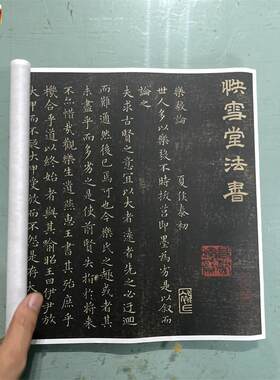 快雪堂法書
樂毅論
夏侯泰初
世人多以樂毅不時拔莒即墨為劣是以叙而
論之
夫求古賢之意宜以大者遠者先之必迂迴
而難通然後已焉可也今樂氏之趣或者其
未盡乎而多劣之是使前賢失指於將來
不亦惜哉觀樂生遺燕惠王書其殆庶乎
機合乎道以終始者與其喻昭王曰伊尹放
大甲而不疑大甲受放而不怨是存大